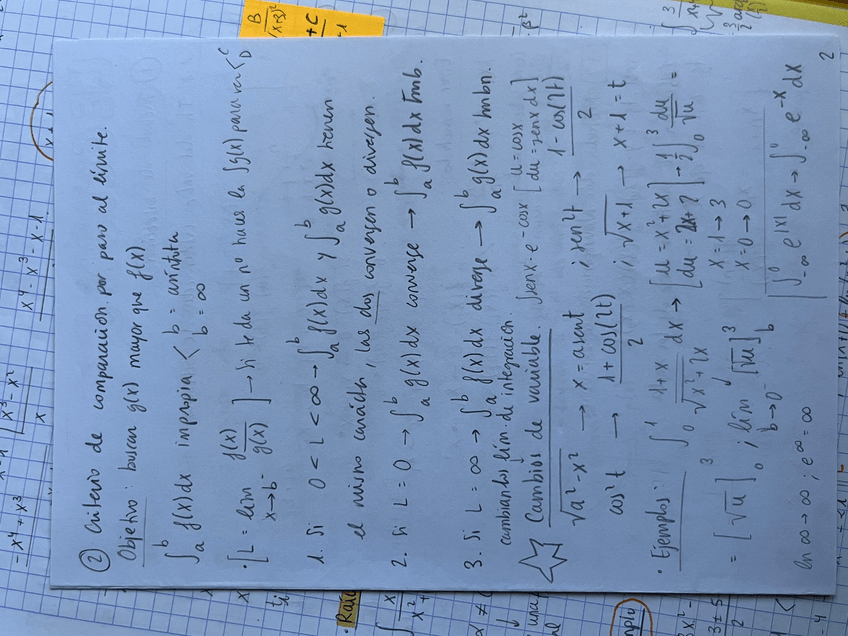 ② Criterio de comparación por paso al límite.
Objetivo: buscar g(x) mayor que f(x)
∫ₐᵇ f(x)dx impropia < b = asíntota
b = ∞
· [L = lím x→b⁻ f(x)/g(x)] → Si te da un nº haces la ∫g(x) para ver <C D
1. Si 0 < L < ∞ → ∫ₐᵇ f(x)dx y ∫ₐᵇ g(x)dx tienen
el mismo carácter, las dos convergen o divergen.
2. Si L = 0 → ∫ₐᵇ g(x)dx converge → ∫ₐᵇ f(x)dx tmb.
3. Si L = ∞ → ∫ₐᵇ f(x)dx diverge → ∫ₐᵇ g(x)dx tmbn.
cambiando lím. de integración.
☆ Cambios de variable. ∫senx·e^-cosx [u = cosx
du = senx dx]
√a²-x² → x = a sent ; sen²t → 1-cos(2t)/2
cos²t → 1+cos(2t)/2 ; √x+1 → x+1 = t
· Ejemplos: ∫₀¹ 1+x/√x²+2x dx → [u = x²+2x
du = 2x+2] → 1/2 ∫₀³ du/√u =
x=1→3
x=0→0
= [√u]₀³ ; lím b→0⁻ [√u]_b³
ln ∞ → ∞ ; e^∞ = ∞
∫_-∞⁰ e^|x| dx → ∫_-∞⁰ e^-x dx
2
-x⁴ + x³
x³ - x²
x
x⁴ - x³ - x - 1
B
(x+3)²
+C